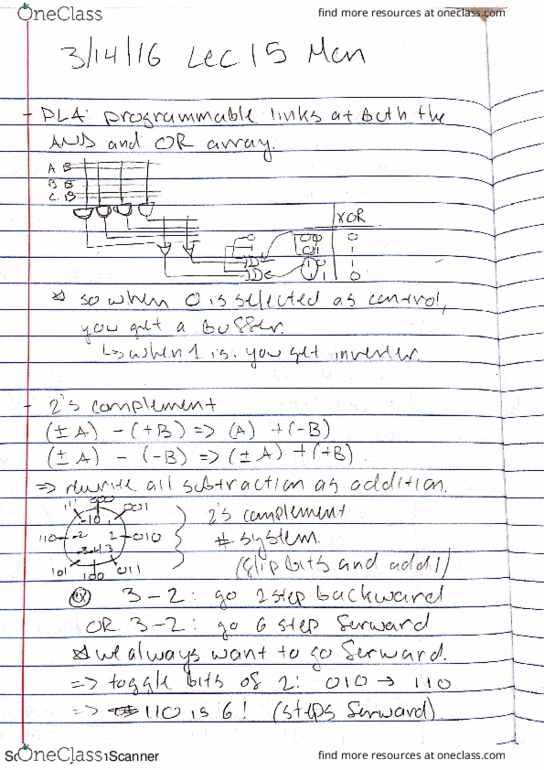 OneClass
find more resources at oneclass.com
3/14/16 Lec 15 Mon
- PLA: programmable links at both the
AND and OR array.
A
B
C
XOR
00 0
01 1
10 1
11 0
* so when 0 is selected as control,
you get a buffer.
↳ when 1 is, you get inverter
- 2's complement
(± A) - (+B) => (A) + (-B)
(± A) - (-B) => (± A) + (+B)
=> rewrite all subtraction as addition.
111 000 001
-1 0 1
110 -2 2 010
-3 -4 3
101 100 011
2's complement
# system
(flip bits and add 1)
ex 3-2: go 2 step backward
OR 3-2: go 6 step forward
* we always want to go forward.
=> toggle bits of 2: 010 → 110
=> 110 is 6! (steps forward)
OneClass
Scanner
find more resources at oneclass.com